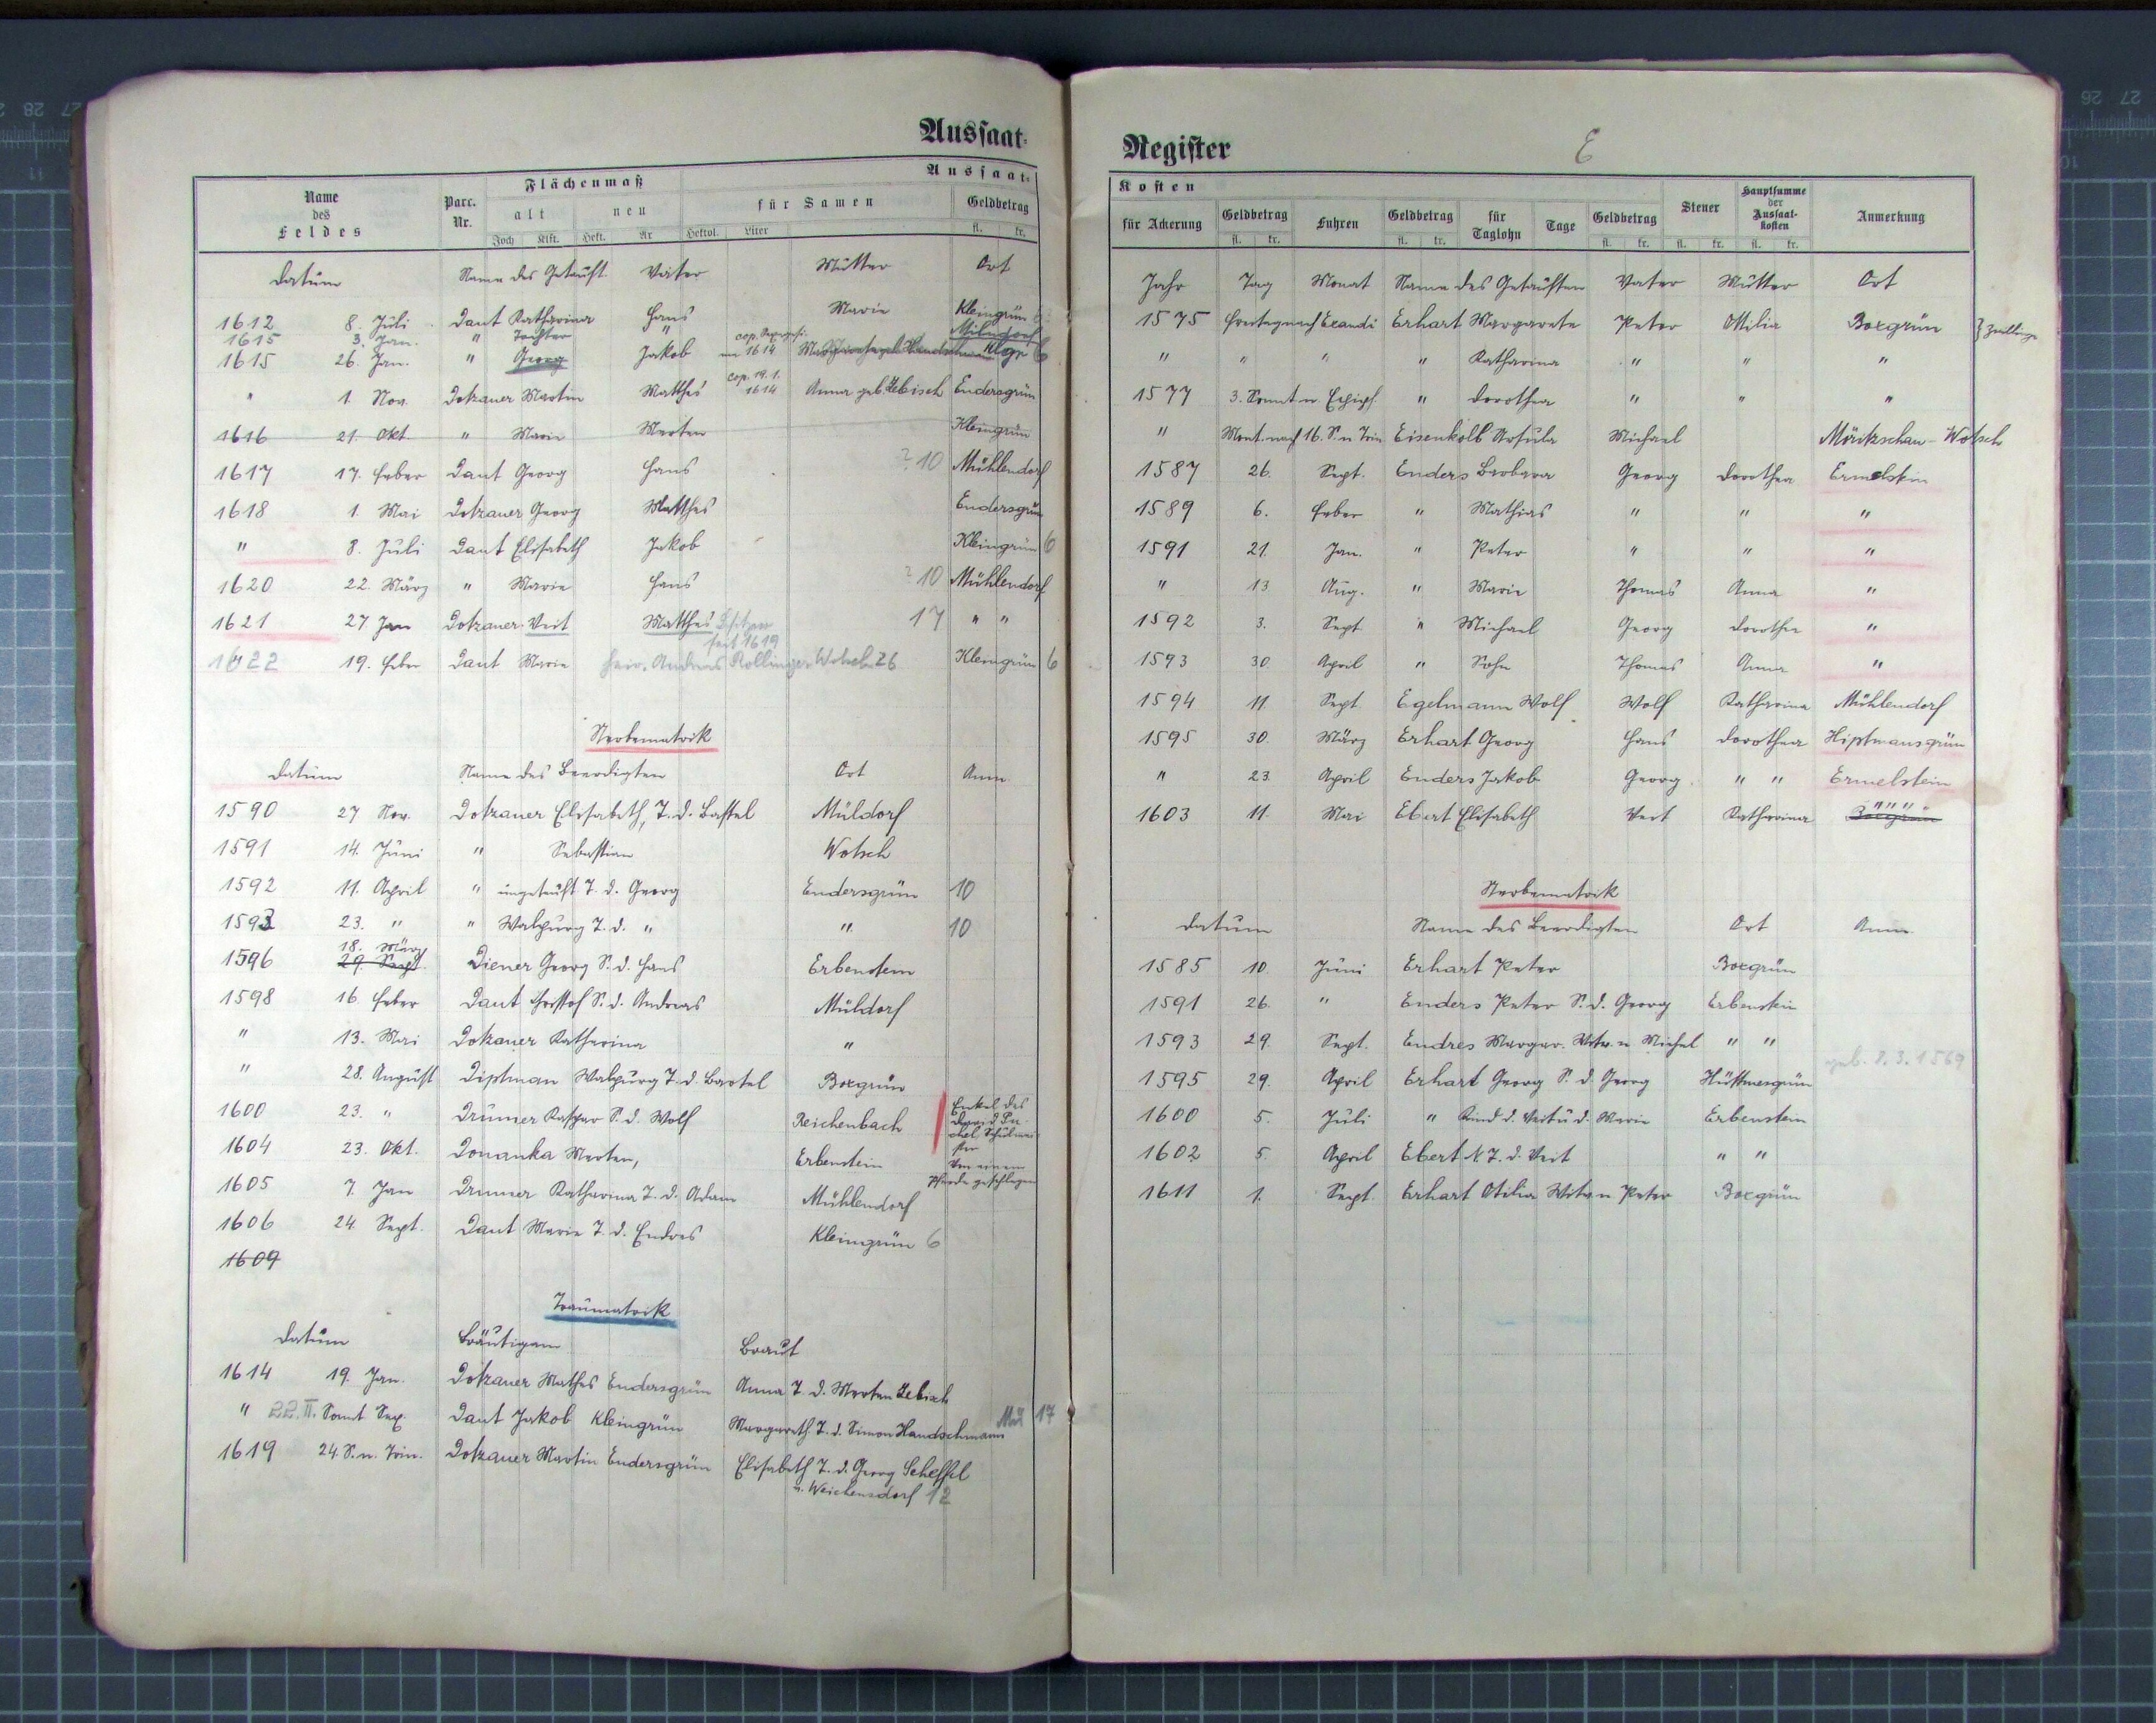 Aussaat-
Name des Feldes Parc. Nr. Flächenmaß Aussaat-
alt neu für Samen Geldbetrag
Joch Klft. Hekt. Ar Hektol. Liter fl. kr.
Datum Name des Getauft. Vater Mutter Ort
1612 8. Juli Daut Katharina Hans Marie Kleingrün
1615 3. Jan. " Tochter " Mühldorf
1615 26. Jan. " Georg Jakob cop. im 1614 Klgr 6
" 1. Nov. Dotzauer Martin Matthes cop. 19. 1. 1614 Anna geb. Zebisch Endersgrün
1616 21. Okt. " Marie Merten Kleingrün
1617 17. Feber Daut Georg Hans ? 10 Mühlendorf
1618 1. Mai Dotzauer Georg Matthes Endersgrün
" 8. Juli Daut Elisabeth Jakob Kleingrün 6
1620 22. März " Marie Hans ? 10 Mühlendorf
1621 27 Jan Dotzauer Veit Matthes Besitzer seit 1619 17 " "
1622 19. Feber Daut Marie heir. Andreas Rollinger Wotsch 26 Kleingrün 6
Sterbematrik
Datum Name des Beerdigten Ort Anm.
1590 27 Nov. Dotzauer Elisabeth, T. d. Bastel Müldorf
1591 14. Juni " Sebastian Wotsch
1592 11. April " ungetauft T. d. Georg Endersgrün 10
1593 23. " " Walpurg T. d. " " 10
1596 18. März 29. Sept. Diener Georg S. d. Hans Erbenstein
1598 16 Feber Daut Christof S. d. Andreas Müldorf
" 13. Mai Dotzauer Katharina "
" 28. August Diptman Walpurg T. d. Bartel Boxgrün
1600 23. " Drumer Kaspar S. d. Wolf Reichenbach Enkel des David Puchel Schulmeister
1604 23. Okt. Donanka Merten, Erbenstein Von einem Pferde geschlagen
1605 7. Jan Drumer Katharina T. d. Adam Mühlendorf
1606 24. Sept. Daut Marie T. d. Endres Kleingrün 6
1609
Traumatrik
Datum Bräutigam Braut
1614 19. Jan. Dotzauer Mathes Endersgrün Anna T. d. Merten Zebisch
" 22. II. Sonnt Sep. Daut Jakob Kleingrün Margareth. T. d. Simon Handschmann Mül 17
1619 24. S. n. Trin. Dotzauer Martin Endersgrün Elisabeth T. d. Georg Scheffel
v. Weichensdorf 12
Register E
Kosten
für Ackerung Geldbetrag Fuhren Geldbetrag für Taglohn Tage Geldbetrag Steuer Hauptsumme der Aussaat-kosten Anmerkung
fl. kr. fl. kr. fl. kr. fl. kr. fl. kr.
Jahr Tag Monat Name des Getauften Vater Mutter Ort
1575 Freitag nach Exaudi Erhart Margarete Peter Ottilia Boxgrün } Zwillinge
" " " " Katharina " " "
1577 3. Sonnt n. Epiph. " Dorothea " " "
" Mont. nach 16. S. n Trin. Eisenkolb Ursula Michael Möritzschau - Wotsch
1587 26. Sept. Enders Barbara Georg Dorothea Ermelstein
1589 6. Feber " Mathias " " "
1591 21. Jan. " Peter " " "
" 13 Aug. " Marie Thomas Anna "
1592 3. Sept " Michael Georg Dorothea "
1593 30. April " Sohn Thomas Anna "
1594 11 Sept. Egelmann Wolf Wolf Katharina Mühlendorf
1595 30. März Erhart Georg Hans Dorothea Hiptmansgrün
" 23. April Enders Jakob Georg " " Ermelstein
1603 11. Mai Ebert Elisabeth Veit Katharina Boxgrün " " "
Sterbematrik
Datum Name des Beerdigten Ort Anm.
1585 10. Juni Erhart Peter Boxgrün
1591 26. " Enders Peter S. d. Georg Erbenstein
1593 29. Sept. Endres Margar. Witw. n Michel " "
1595 29. April Erhart Georg S. d. Georg Hüttmesgrün geb. 8. 3. 1569
1600 5. Juli " Kind d. Veit u d. Marie Erbenstein
1602 5. April Ebert N T. d. Veit " "
1611 1. Sept. Erhart Otilia Witw n Peter Boxgrün